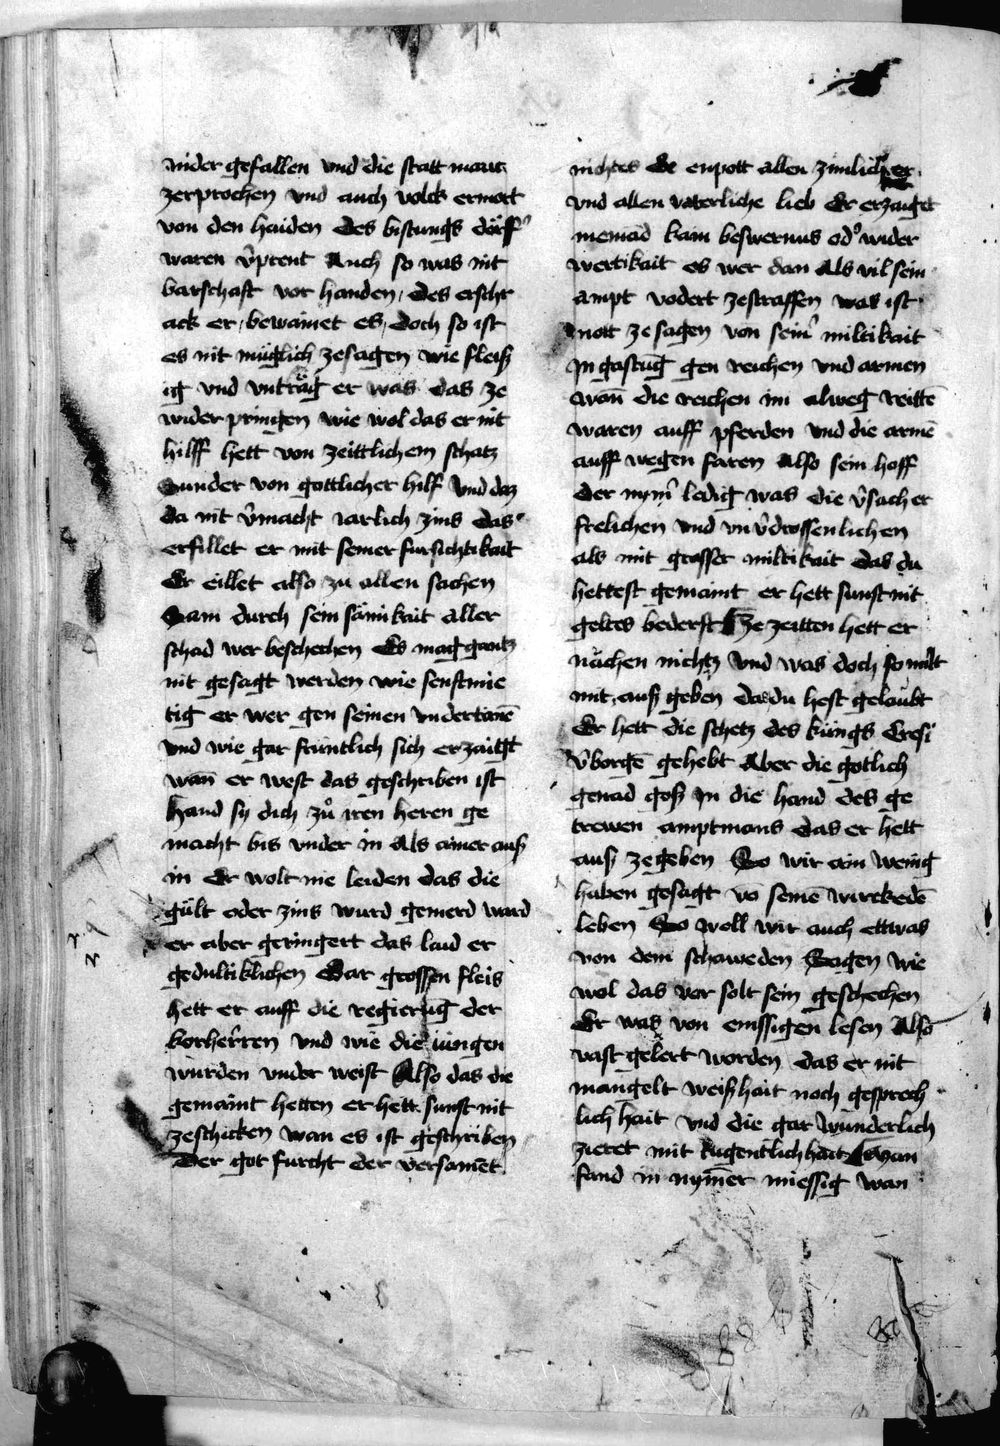 nider gefallen vnd die statt maur
zerprochen vnd auch volck ermort
von den haiden des bistungs dörff
waren v̂prent Auch so was nit
barschaft vor handen des erschr
ack er bewainet es doch so ist
es nit müglich zesagen wie fleiß
ig vnd vnträg er was das ze
wider pringen wie wol das er nit
hilff hett von zeittlichem schatz
Sunder von gottlicher hilf vnd daz
da nit v̂macht iarlich zins das
erfillet er mit seiner fursichtikait
Er eillet also zu allen sachen
Sam durch sein sämikait aller
schad wer beschechen Es mag gantz
nit gesagt werden wie senftmie
tig er wer gen seinen vndertanē
vnd wie gar früntlich sich erzaigt
wan er west das geschriben ist
hand sy dich zů iren heren ge
macht bis vnder in Als ainer auß
in Er wolt nie leiden das die
gült oder zins wurd gemerd ward
er aber geringert das laid er
gedultiklichen Gar grossen fleis
hett er auff die regierūg der
korherren vnd wie die iüngen
würden vnder weist Also das die
gemaint hetten er hett sunst nit
zeschicken wan es ist geschriben
Der got furcht der versamēt
nichtes Er enpott allen zimlich er
vnd allen vaterliche lieb Er erzaigtt
niemād kain beswernus od' wider
wertikait es wer dan Als vil sein
ampt vodert zestraffen was ist
nott ze sagen von sein' miltikait
In gastūg gen reichen vnd armen
wan die reichen im alweg reittē
waren auff pferden vnd die armē
auff wegen faren Also sein hoff
der nym̄ ledig was die v̂sach er
frelichen vnd vnv̂drossenlichen
als mit grosser miltikait das du
hettest gemaint er hett sunst nit
geltes bederft Ze zeitten hett er
nächen nichtz vnd was doch so milt
mit auß geben das du hest gelaubt
Er hett die schetz des küngs Cresi
v̂borgē gehebt Aber die gotlich
genad goß In die hand des ge
trewen amptmans das er hett
auß zegeben So wir ain wenig
haben gesagt vō seinē wirckedē
leben So woll wir auch ettwas
von dem schaweden Sagen wie
wol das vor solt sein geschechen
Er was von emssigen lesen Also
vast gelert worden das er nit
mangelt weißhait noch gesprech
lich hait vnd die gar wunderlich
zieret mit tugentlich hait Man
fand in nymēr miessig wan